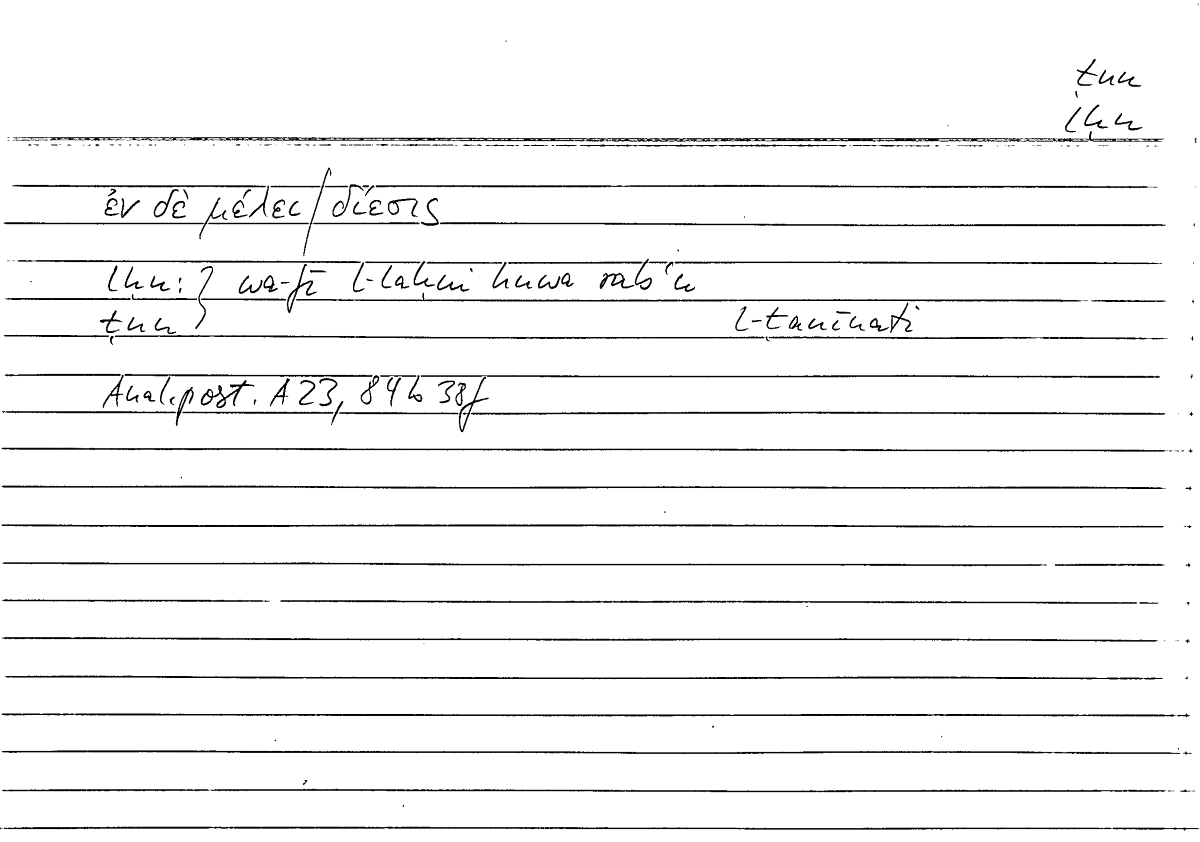 ṭnn
lḥn
ἐν δὲ μέλει / δίεσις
lḥn: } wa-fī l-laḥni huwa rabʿu
ṭnn } l-ṭanīnati
Anal.post. A 23, 84b 38f